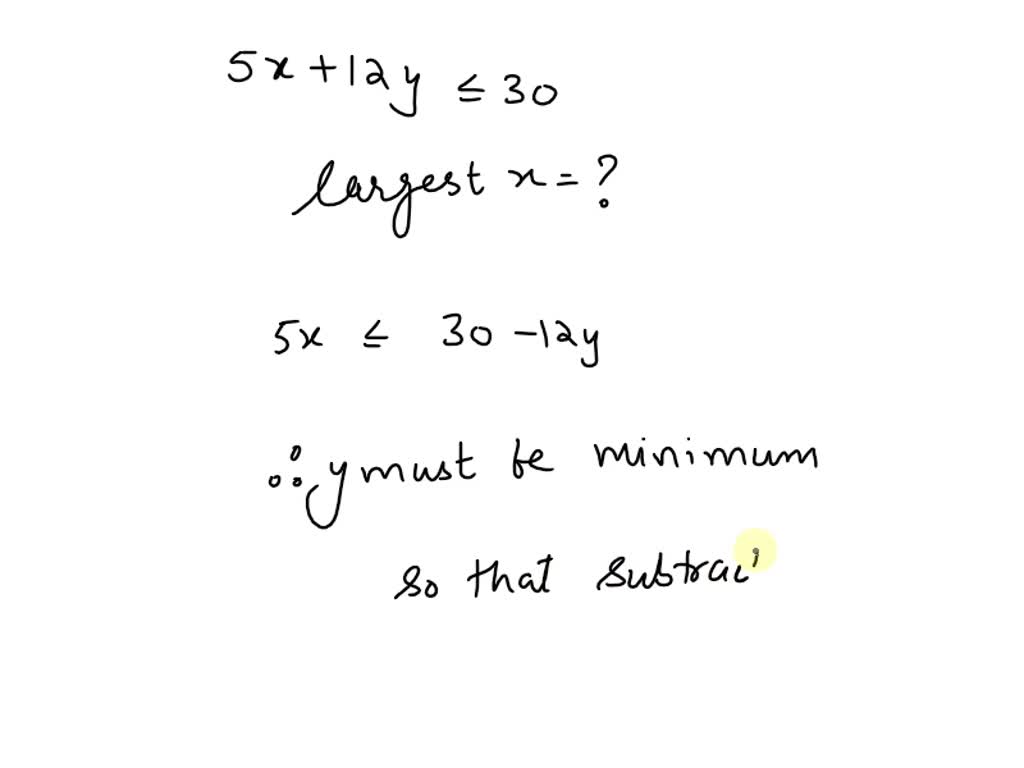 5x + 12y ≤ 30
largest x = ?
5x ≤ 30 - 12y
∴ y must be minimum
so that